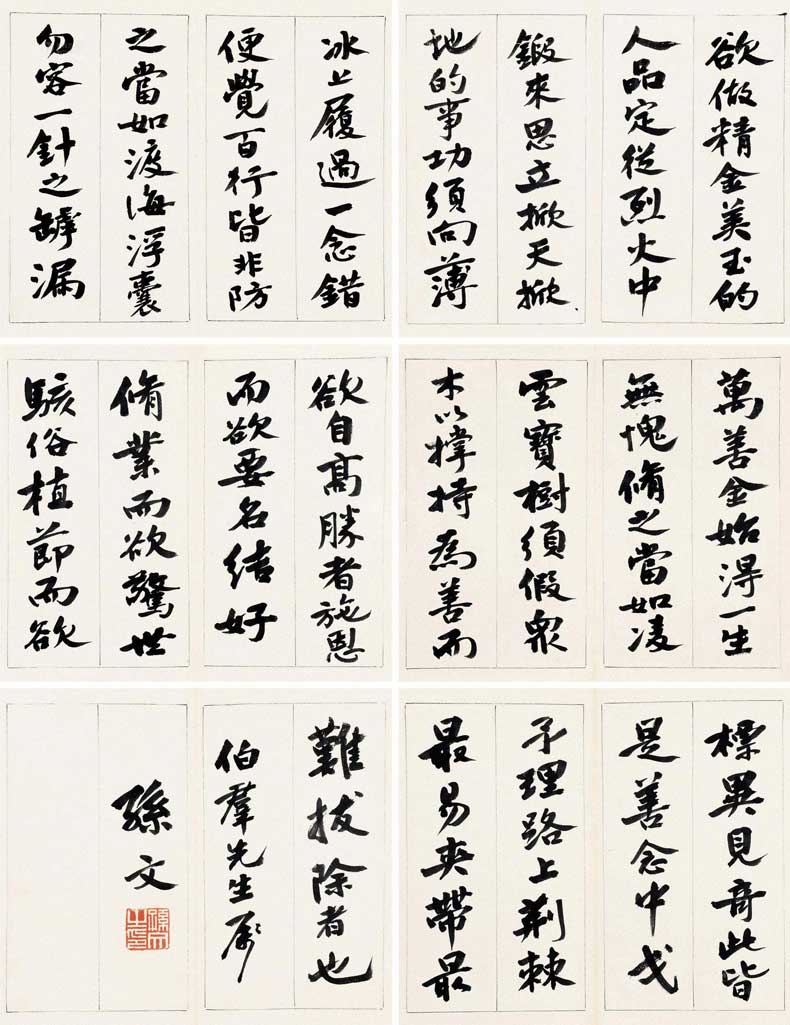 欲做精金美玉的
人品定從烈火中
鍛來思立掀天掀
地的事功須向薄
冰上履過一念錯
便覺百行皆非防
之當如渡海浮囊
勿容一針之罅漏
萬善全始得一生
無愧脩之當如凌
雲寶樹須假眾
木以撐持為善而
欲自高勝者施恩
而欲要名結好
脩業而欲驚世
駭俗植節而欲
標異見奇此皆
是善念中戈
矛理路上荊棘
最易夾帶最
難拔除者也
伯羣先生屬
孫文
孫文之印